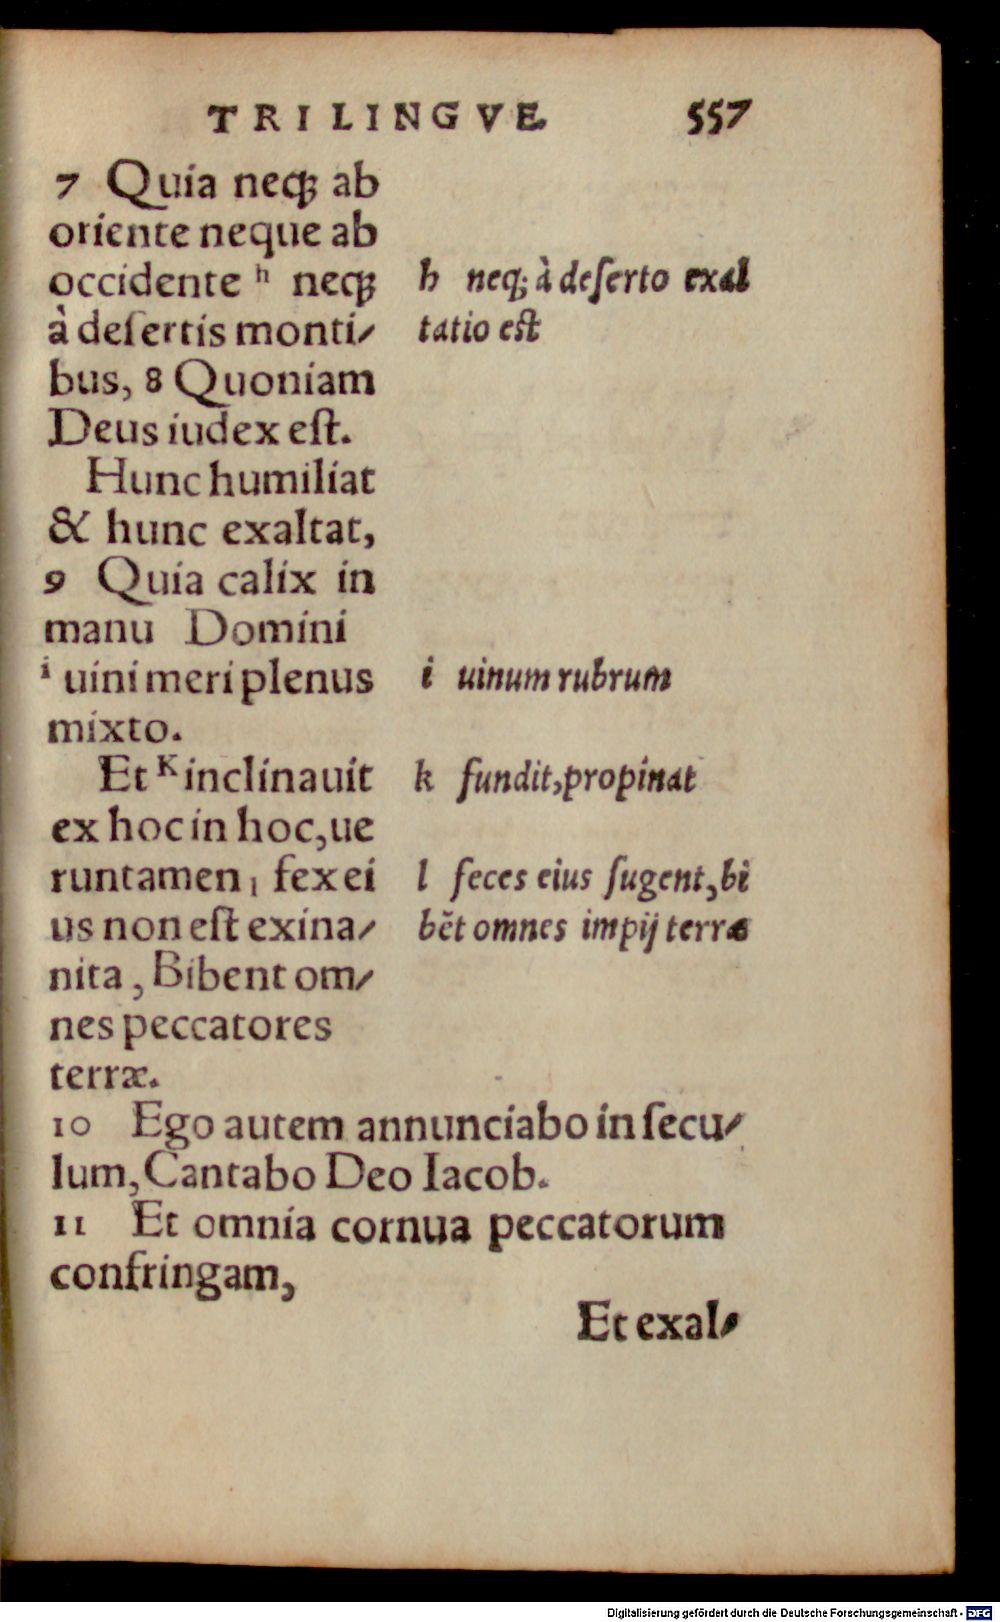 TRILINGVE. 557
7 Quia neqꝫ ab
oriente neque ab
occidente h neqꝫ
à deſertis monti⸗
bus, 8 Quoniam
Deus iudex eſt.
Hunc humiliat
& hunc exaltat,
9 Quia calix in
manu Domini
i uini meri plenus
mixto.
Et K inclinauit
ex hoc in hoc, ue
runtamen l fex ei
us non eſt exina⸗
nita, Bibent om⸗
nes peccatores
terræ.
h neq; à deſerto exal
tatio eſt
i uinum rubrum
k fundit, propinat
l feces eius ſugent, bi
bēt omnes impij terræ
10 Ego autem annunciabo in ſecu⸗
lum, Cantabo Deo Iacob.
11 Et omnia cornua peccatorum
confringam,
Et exal⸗
Digitalisierung gefördert durch die Deutsche Forschungsgemeinschaft - DFG